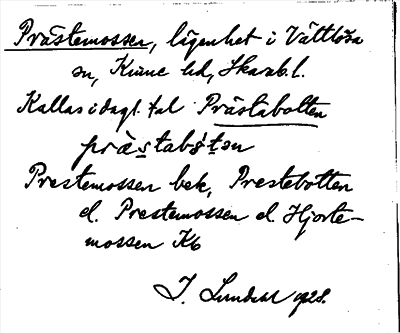 Prästemossen, lägenhet i Vättlösa
sn, Kinne hd, Skarab. l.
Kallas i dagl. tal Prästabotten
Prestemossen bek, Prestebotten
el. Prestemossen el. Hjorte-
mossen Kb
I. Lundahl 1928.